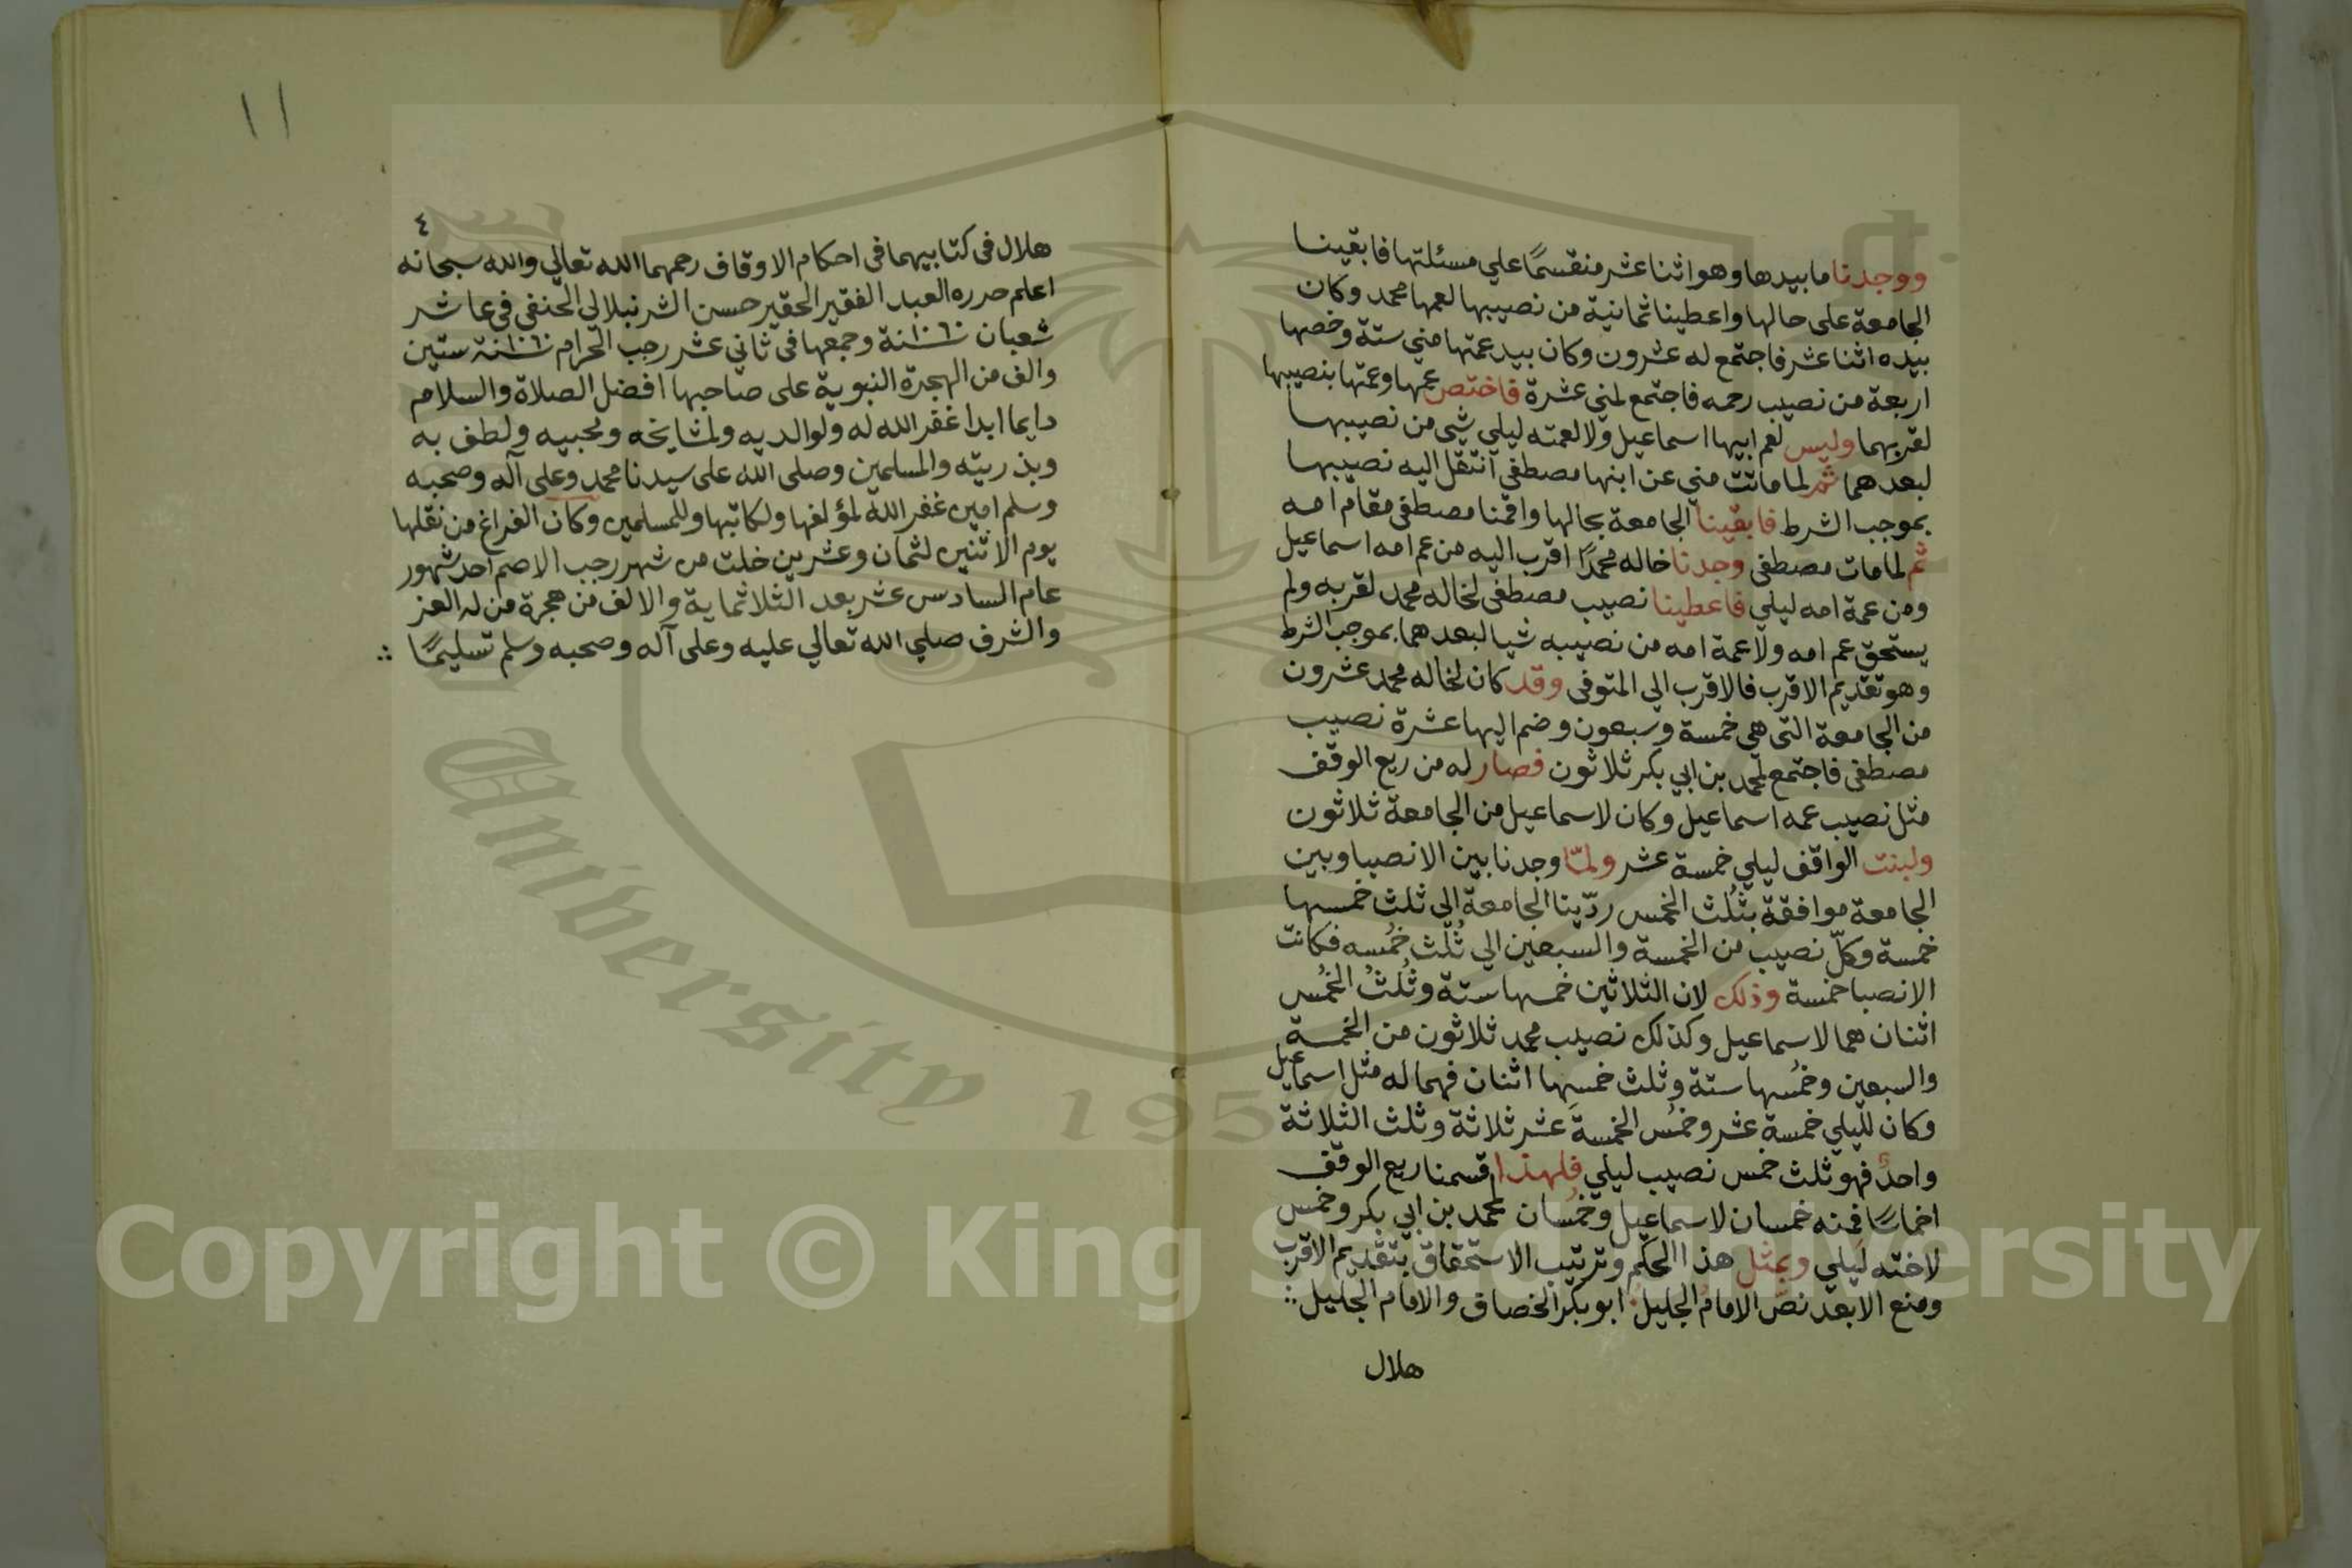 ووجدنا ما بيدها وهو اثنا عشر منقسمًا علي مسئلتها فابقينا
الجامعة على حالها واعطينا ثمانية من نصيبها لعمها محمد وكان
بيده اثنا عشر فاجتمع له عشرون وكان بيد عمتها مني ستة وخصها
اربعة من نصيب رحمه فاجتمع لمني عشرة فاختص عمها وعمتها بنصيبها
لقربهما وليس لعم ابيها اسماعيل ولا لعمته ليلي شي من نصيبها
لبعدهما ثم لما ماتت مني عن ابنها مصطفى انتقل اليه نصيبها
بموجب الشرط فابقينا الجامعة بحالها واقمنا مصطفى مقام امه
ثم لما مات مصطفى وجدنا خاله محمدًا اقرب اليه من عم امه اسماعيل
ومن عمة امه ليلي فاعطينا نصيب مصطفى لخاله محمد لقربه ولم
يستحق عم امه ولا عمة امه من نصيبه شيا لبعدهما بموجب الشرط
وهو تقديم الاقرب فالاقرب الي المتوفى وقد كان لخاله محمد عشرون
من الجامعة التى هي خمسة وسبعون وضم اليها عشرة نصيب
مصطفى فاجتمع لمحمد بن ابي بكر ثلاثون فصار له من ريع الوقف
مثل نصيب عمه اسماعيل وكان لاسماعيل من الجامعة ثلاثون
ولبنت الواقف ليلي خمسة عشر ولمّا وجدنا بين الانصبا وبين
الجامعة موافقة بثُلُث الخمس ردّينا الجامعة الي ثلث خمسها
خمسة وكلّ نصيب من الخمسة والسبعين الي ثُلُث خُمسه فكانت
الانصبا خمسة وذلك لان الثلاثين خمسها ستة وثُلُثُ الخُمُس
اثنان هما لاسماعيل وكذلك نصيب محمد ثلاثون من الخمسة
والسبعين وخُمُسها ستة وثلث خمسِها اثنان فهما له مثل اسماعيل
وكان لليلي خمسة عشر وخمُس الخمسةَ عشر ثلاثة وثلث الثلاثة
واحدٌ فهو ثلث خمس نصيب ليلي فلهذا قسمنا ريع الوقف
اخماسًا فمنه خمسان لاسماعيل وخُمُسان لمحمد بن ابي بكر وخمس
لاخته ليلي وبمثل هذا الحكم وترتيب الاستحقاق بتقديم الاقرب
ومنع الابعد نصّ الامام الجليل ابو بكر الخصاف والامام الجليل
هلال
١١
٤
هلال فى كتابيهما فى احكام الاوقاف رحمهما الله تعالي والله سبحانه
اعلم حرره العبد الفقير الحقير حسن الشرنبلالي الحنفي في عاشر
شعبان سنة ١٠٦٠ وجمعها في ثاني عشر رجب الحرام سنة ١٠٦٠ ستين
والف من الهجرة النبوية على صاحبها افضل الصلاة والسلام
دايما ابدا غفر الله له ولوالديه ولمشايخه ومحبيه ولطف به
وبذريته والمسلمين وصلى الله على سيدنا محمد وعلى آله وصحبه
وسلم امين غفر الله لمؤلفها ولكاتبها وللمسلمين وكان الفراغ من نقلها
يوم الاثنين لثمان وعشرين خلت من شهر رجب الاصم احد شهور
عام السادس عشر بعد الثلاثماية والالف من هجرة من له العز
والشرف صلي الله تعالي عليه وعلى آله وصحبه وسلم تسليمًا
University 1957
Copyright © King Saud University